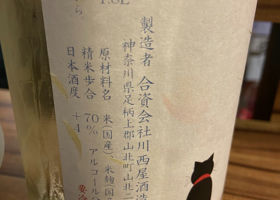 1.8L
製造者 合資会社川西屋酒造
神奈川県足柄上郡山北町山北
原材料名 米(国産)、米麹(国
精米歩合 70% アルコール分
日本酒度 +4 要冷